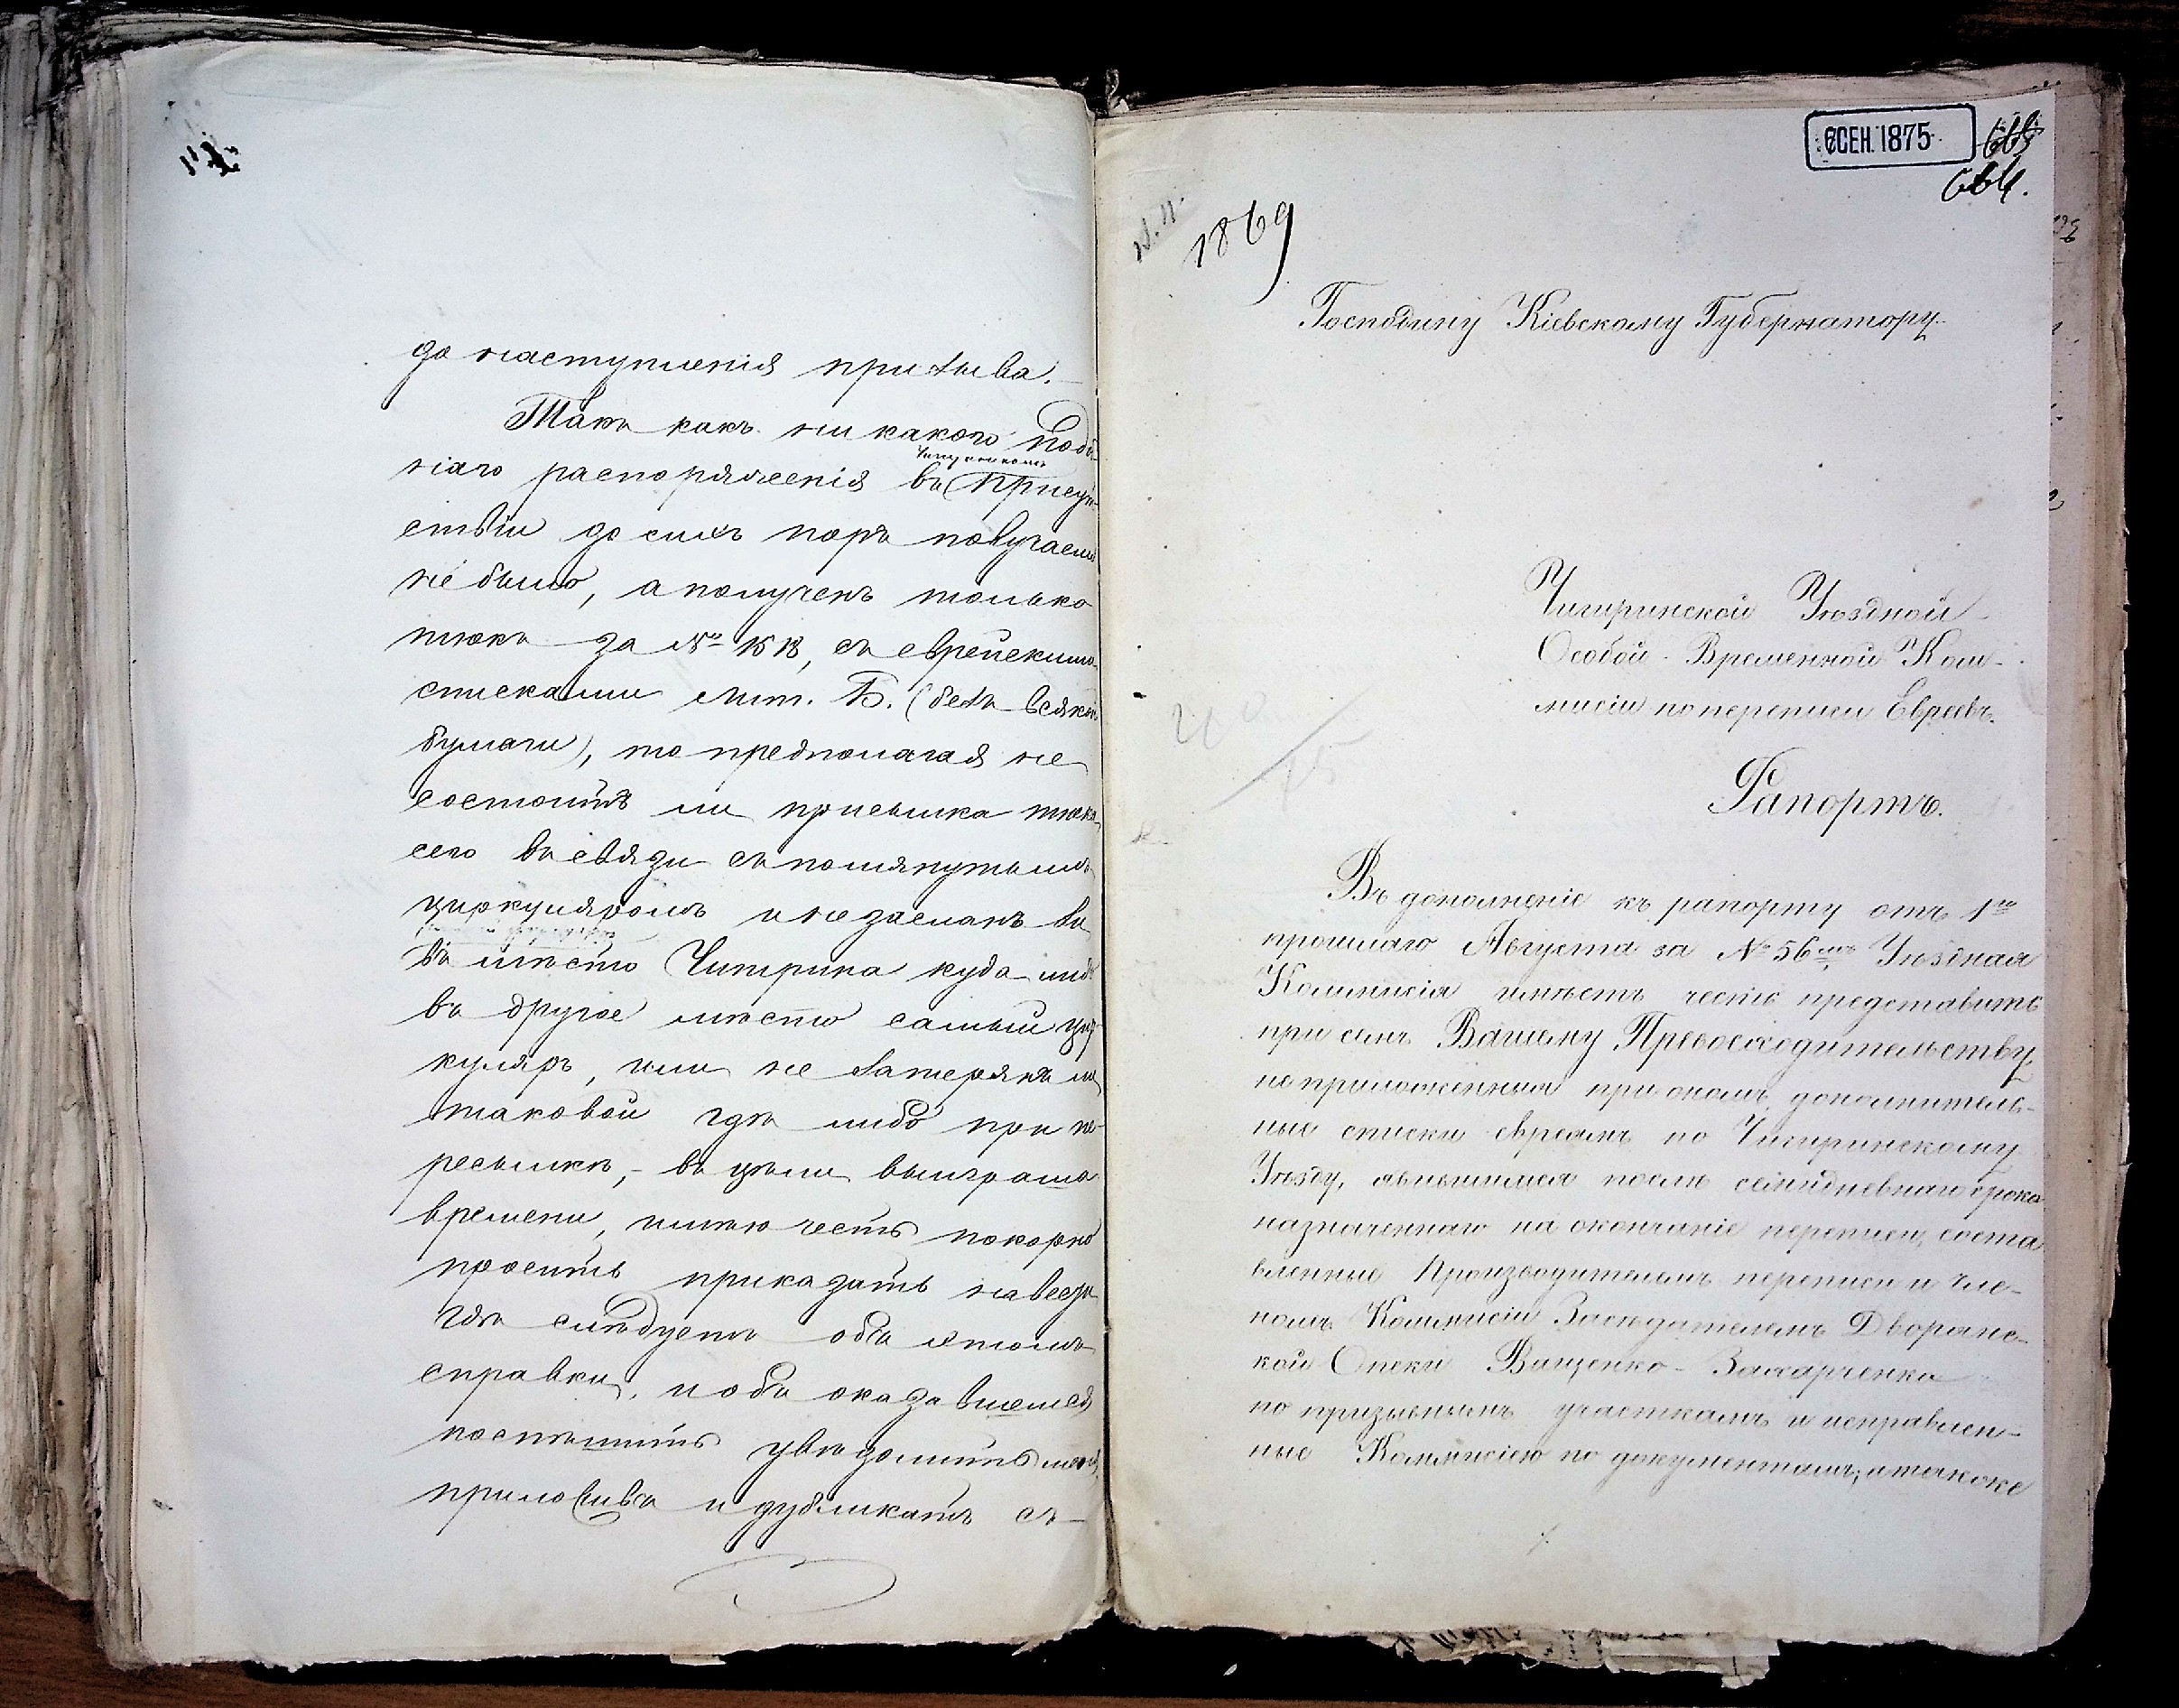 до наступленія призыва.
Такъ какъ ни какого подоб-
наго распоряженія въ Присут-
ствіи до сихъ поръ получаемо
не было, а полученъ только
тюкъ за № 1518, съ еврейскими
списками лит. Б. (безъ всякой
бумаги), то предполагая не
состоитъ ли присылка тюка
сего въ связи съ помянутымъ
циркуляромъ и не засланъ ли
въ мѣсто Чигирина куда либо
въ другое мѣсто самый цир-
куляръ, или не затерянъ ли
таковой гдѣ либо при пе-
ресылкѣ, - въ цѣли выиграша
времени, имѣю честь покорно
просить приказать навесть
гдѣ слѣдуетъ объ этомъ
справки, и объ оказавшемся
поспѣшить увѣдомить меня,
приложивъ и дубликатъ съ
6 СЕН. 1875
663
664.
1869
Господину Кіевскому Губернатору.
Чигиринской Уѣздной
Особой Временной Ком-
мисіи по переписи Евреевъ.
Рапортъ.
Въ дополненіе къ рапорту отъ 1го
прошлаго Августа за № 56мъ, Уѣздная
Коммисія имѣетъ честь представить
при семъ Вашему Превосходительству,
не приложенныя при ономъ дополнитель-
ные списки евреямъ по Чигиринскому
Уѣзду, явившимся послѣ семидневнаго срока
назначеннаго на окончаніе переписи, соста
вленные Производителемъ переписи и Чле-
номъ Коммисіи Засѣдателемъ Дворянс-
кой Опеки Ващенко-Захарченко
по призывнымъ участкамъ и исправлен-
ные Коммисіею по документамъ; а также